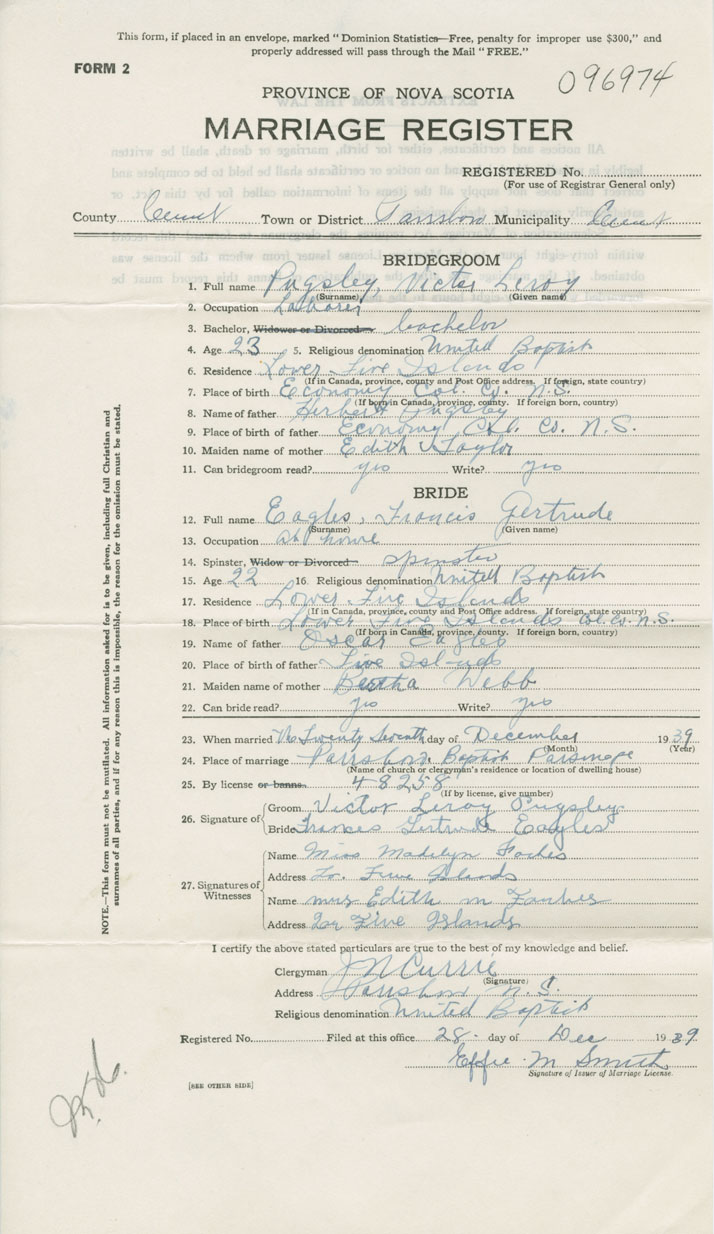 This form, if placed in an envelope, marked "Dominion Statistics—Free, penalty for improper use $300," and
properly addressed will pass through the Mail "FREE."
FORM 2
096974
PROVINCE OF NOVA SCOTIA
MARRIAGE REGISTER
REGISTERED No.
(For use of Registrar General only)
County Town or District Parrsboro Municipality
BRIDEGROOM
1. Full name Pugsley, Victor Leroy
(Surname) (Given name)
2. Occupation Laborer
3. Bachelor, Widower or Divorced bachelor
4. Age 23 5. Religious denomination United Baptist
6. Residence Lower Five Islands
(If in Canada, province, county and Post Office address. If foreign, state country)
7. Place of birth Economy Col. Co. N.S.
(If born in Canada, province, county. If foreign born, country)
8. Name of father Herbert Pugsley
9. Place of birth of father Economy Col. Co. N.S.
10. Maiden name of mother Edith Taylor
11. Can bridegroom read? yes Write? yes
BRIDE
12. Full name Eagles, Francis Gertrude
(Surname) (Given name)
13. Occupation at home
14. Spinster, Widow or Divorced spinster
15. Age 22 16. Religious denomination United Baptist
17. Residence Lower Five Islands
(If in Canada, province, county and Post Office address. If foreign, state country)
18. Place of birth Lower Five Islands Col. Co. N.S.
(If born in Canada, province, county. If foreign born, country)
19. Name of father Oscar Eagles
20. Place of birth of father Five Islands
21. Maiden name of mother Bertha Webb
22. Can bride read? yes Write? yes
23. When married The Twenty Seventh day of December 1939
(Month) (Year)
24. Place of marriage Parrsboro Baptist Parsonage
(Name of church or clergyman's residence or location of dwelling house)
25. By license or banns 48258
(If by license, give number)
26. Signature of
Groom Victor Leroy Pugsley
Bride Frances Gertrude Eagles
27. Signatures of Witnesses
Name Miss Madelyn
Address Lr. Five Islands
Name Mrs Edith M
Address Lr Five Islands
NOTE.—This form must not be mutilated. All information asked for is to be given, including full Christian and
surnames of all parties, and if for any reason this is impossible, the reason for the omission must be stated.
I certify the above stated particulars are true to the best of my knowledge and belief.
Clergyman J N Currie
(Signature)
Address Parrsboro N.S.
Religious denomination United Baptist
Registered No. Filed at this office 28 day of Dec 1939
Effie M Smith
Signature of Issuer of Marriage License.
[SEE OTHER SIDE]